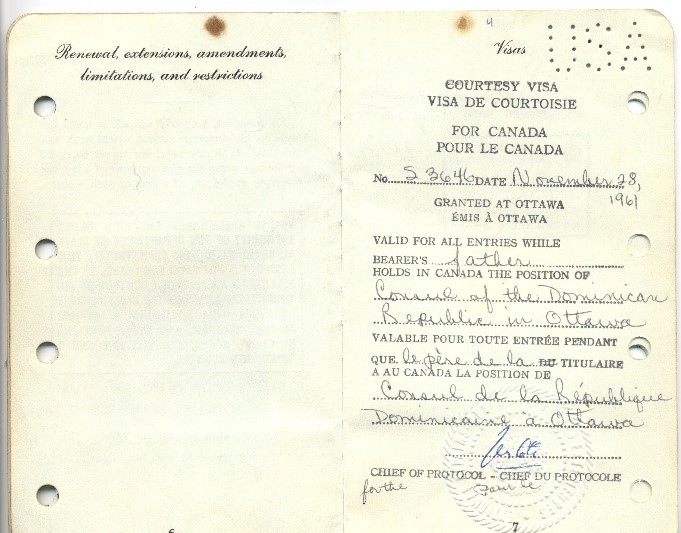 Renewal, extensions, amendments,
limitations, and restrictions
6
4
Visas
USA
COURTESY VISA
VISA DE COURTOISIE
FOR CANADA
POUR LE CANADA
No. S 3646 DATE November 28,
1961
GRANTED AT OTTAWA
ÉMIS À OTTAWA
VALID FOR ALL ENTRIES WHILE
BEARER'S father
HOLDS IN CANADA THE POSITION OF
Consul of the Dominican
Republic in Ottawa
VALABLE POUR TOUTE ENTRÉE PENDANT
QUE le père de la DU TITULAIRE
A AU CANADA LA POSITION DE
Consul de la République
Dominicaine à Ottawa
CHIEF OF PROTOCOL - CHEF DU PROTOCOLE
for the pour le
7